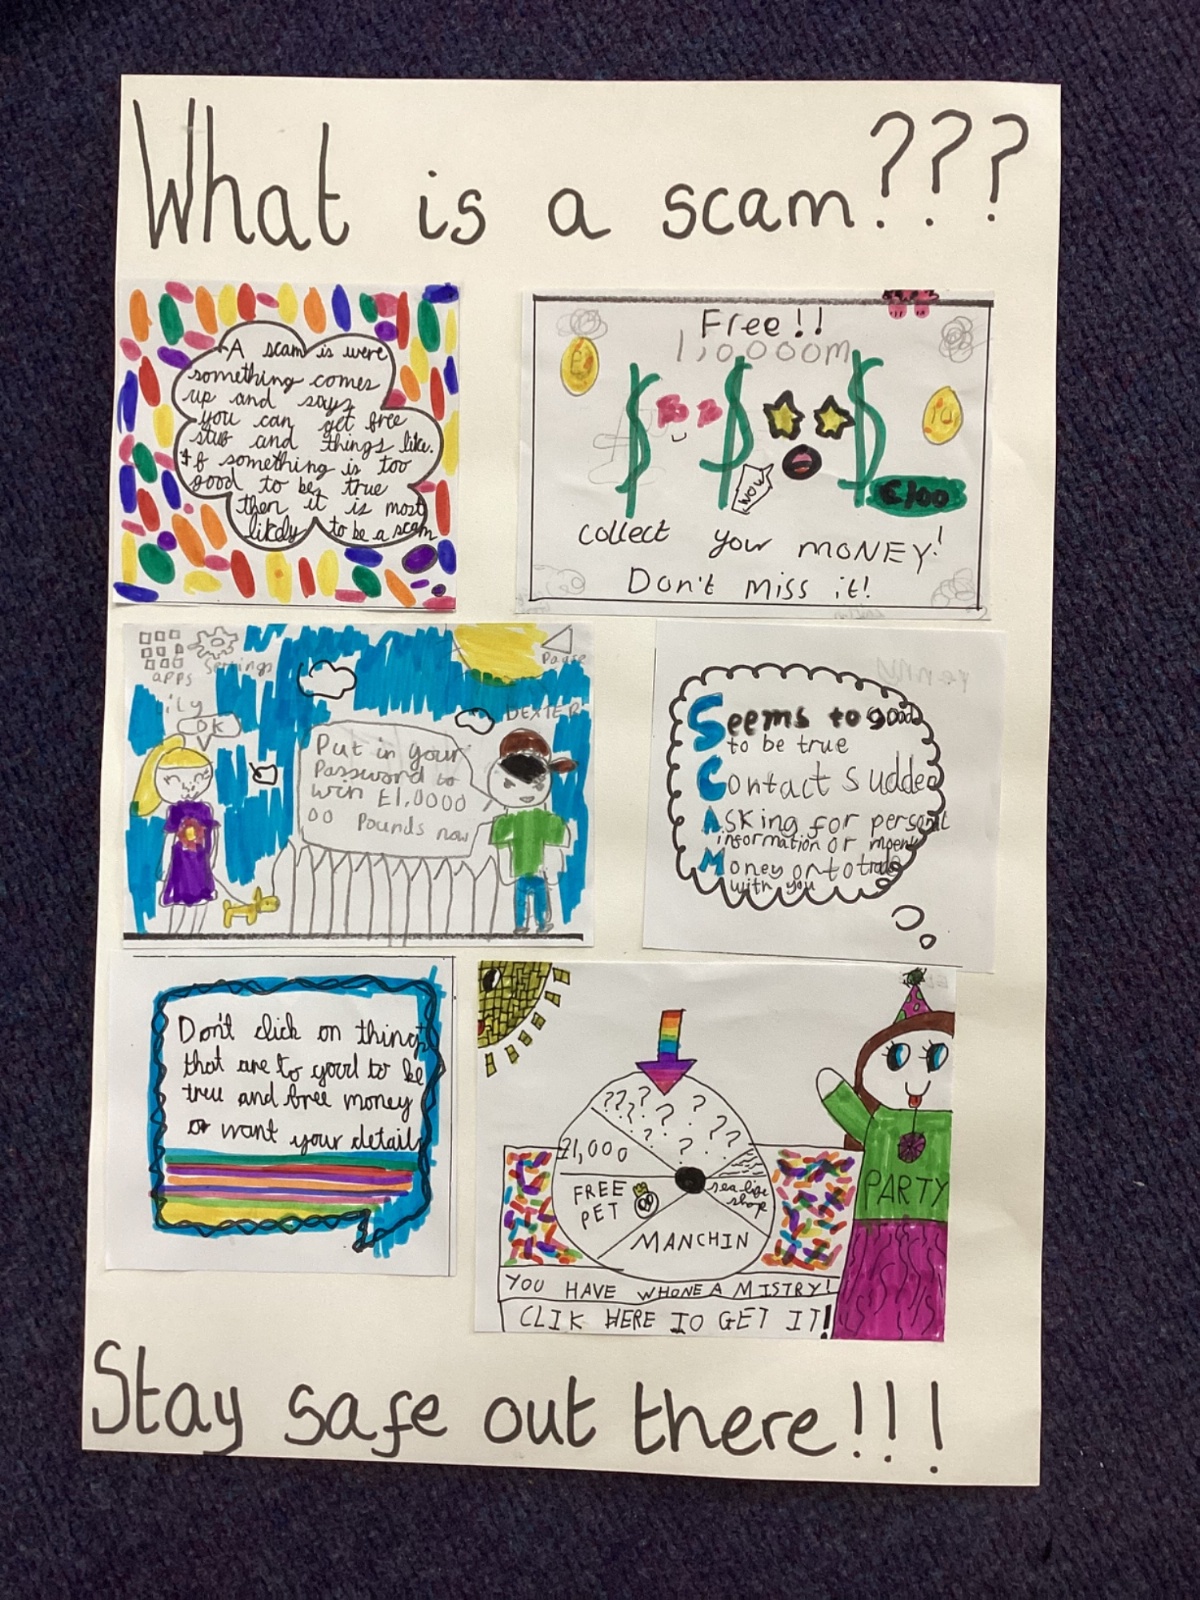 What is a scam???
A scam is were
something comes
up and says
you can get free
stuf and things like.
If something is too
good to be true
then it is most
likely to be a scam
Free!!
1,0000m
WOW
€100
collect your MONEY!
Don't Miss it!
apps
Settings
Pause
lily
OK
DEXTER
Put in your
Password to
win £1,0000
00 Pounds now
Seems to good
to be true
Contact Sudden
Asking for personal
information or money
Money or to trade
with you
Don't click on things
that are to good to be
true and free money
or want your details
PARTY
??? ? ? ? ??
£1,000
FREE
PET
sea life
shop
MANCHIN
YOU HAVE WHONE A MISTRY!
CLIK HERE TO GET IT!
Stay safe out there!!!